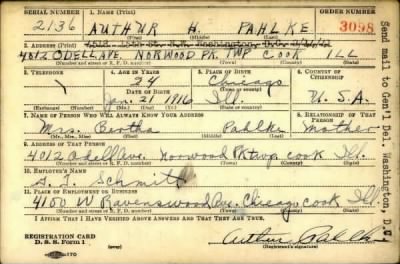 SERIAL NUMBER 1. NAME (Print) ORDER NUMBER
2136 AUTHUR H. PAHLKE 3098
(First) (Middle) (Last)
2. ADDRESS (Print)
4012 ODELL AVE. NORWOOD PK TWP COOK ILL
(Number and street or R. F. D. number) (Town) (County) (State)
3. TELEPHONE 4. AGE IN YEARS 5. PLACE OF BIRTH 6. COUNTRY OF CITIZENSHIP
24 Chicago
DATE OF BIRTH
Jan. 21 1916 Ill. U. S. A.
(Exchange) (Number) (Mo.) (Day) (Yr.) (State or country)
7. NAME OF PERSON WHO WILL ALWAYS KNOW YOUR ADDRESS 8. RELATIONSHIP OF THAT PERSON
Mrs. Bertha Pahlke Mother
(Mr., Mrs., Miss) (First) (Middle) (Last)
9. ADDRESS OF THAT PERSON
4012 Odell Ave. Norwood Pk twp. Cook Ill.
(Number and street or R. F. D. number) (Town) (County) (State)
10. EMPLOYER'S NAME
Schmitt
11. PLACE OF EMPLOYMENT OR BUSINESS
4100 W Ravenswood Ave. Chicago Cook Ill.
(Number and street or R. F. D. number) (Town) (County) (State)
I AFFIRM THAT I HAVE VERIFIED ABOVE ANSWERS AND THAT THEY ARE TRUE.
REGISTRATION CARD
D. S. S. Form 1
(Registrant's signature)
Send mail to Gen'l Del. Washington, D.C.